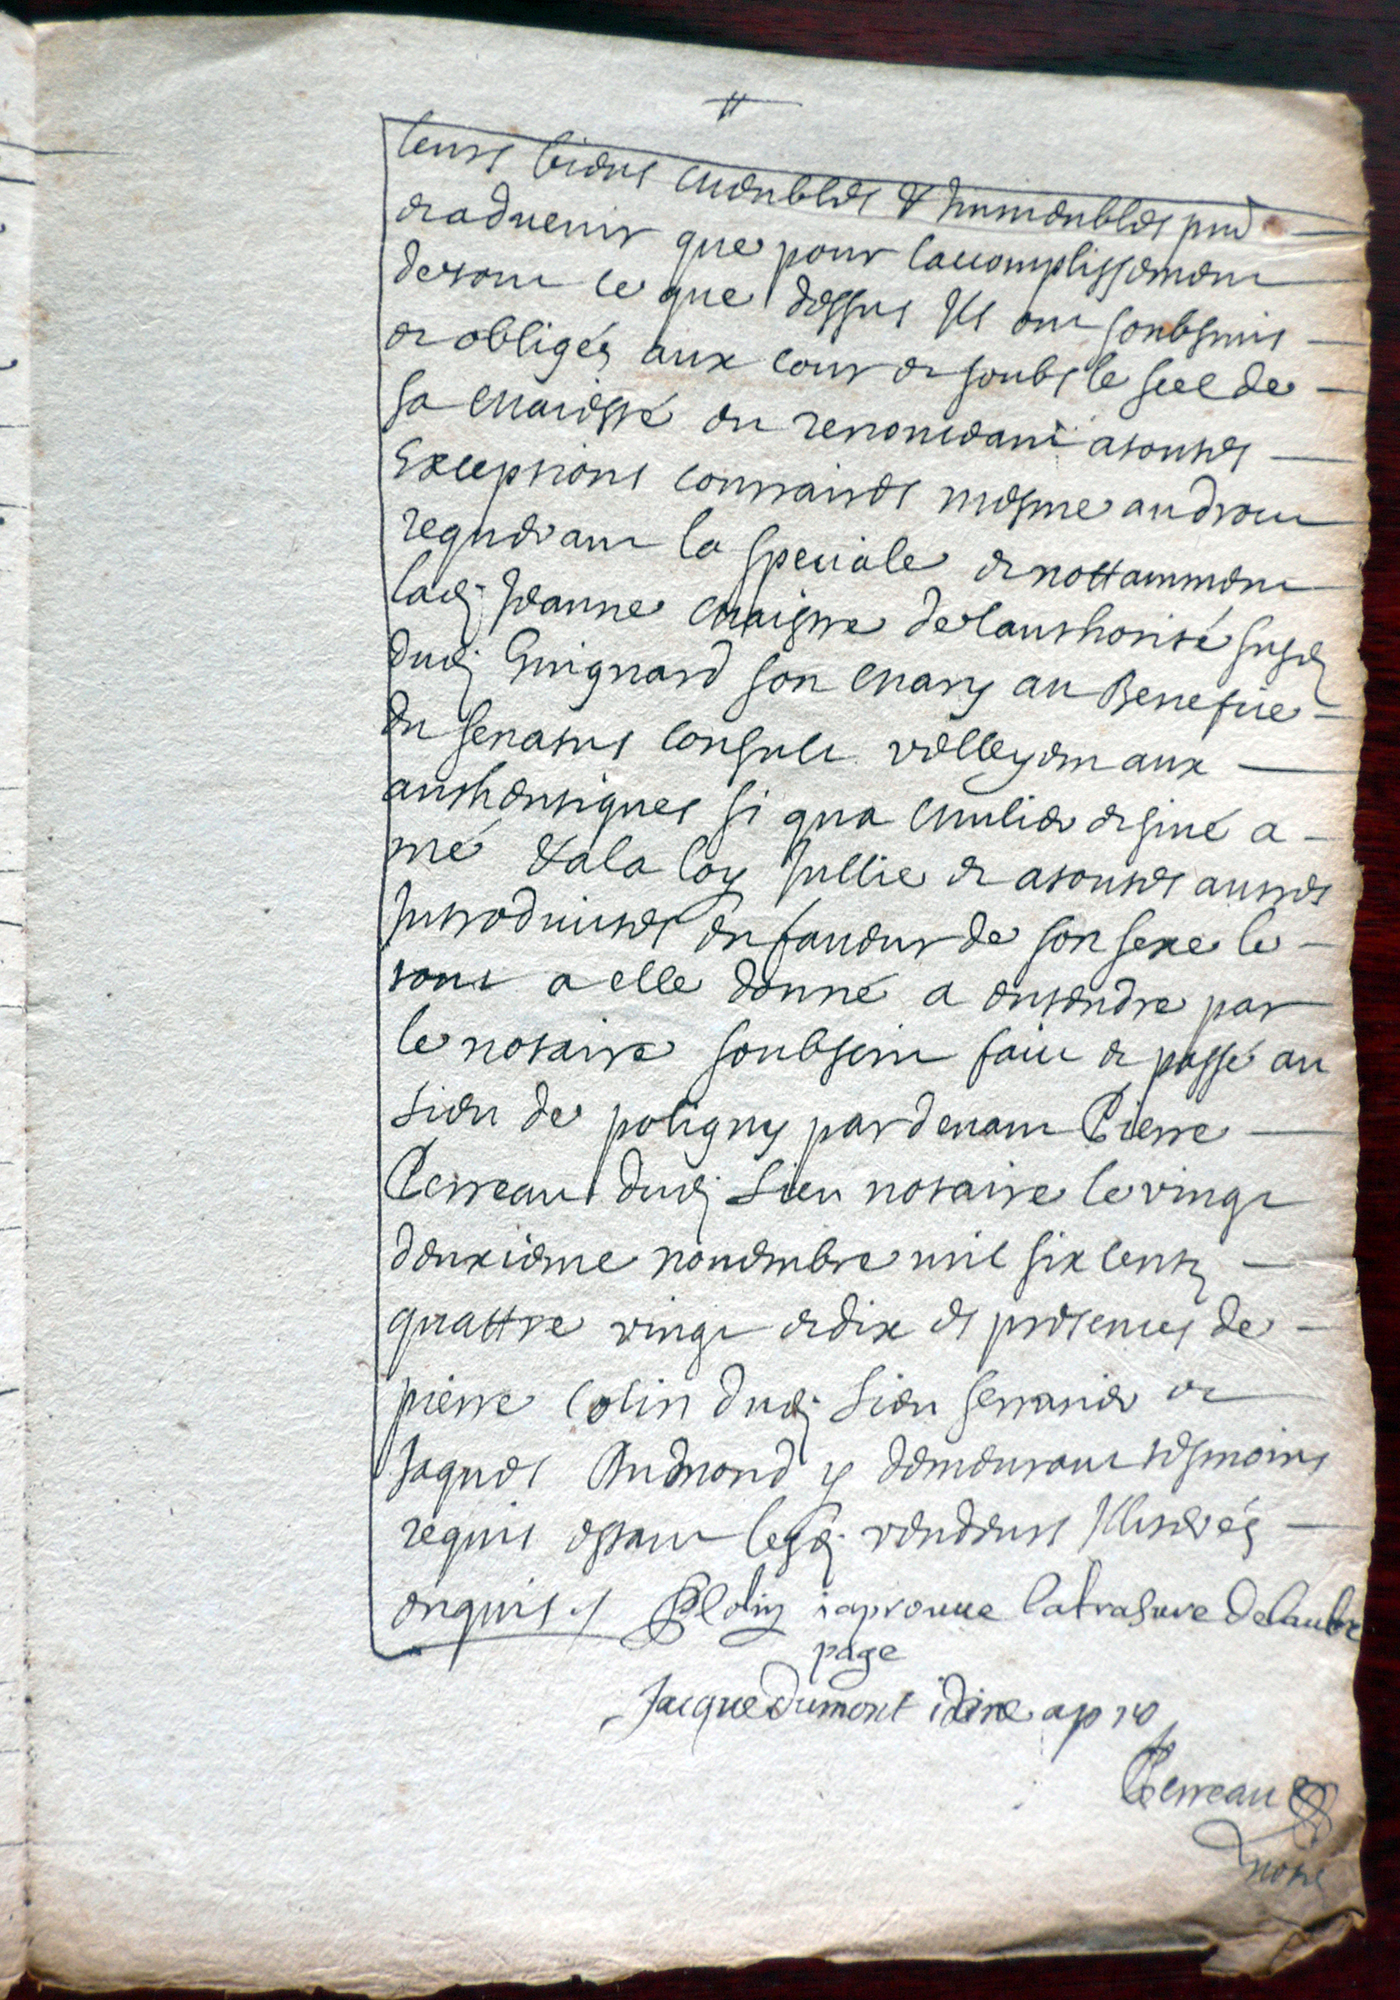 leurs biens meubles & immeubles pnd
et aduenir que pour laccomplissement
detout ce que dessus Ils ont soubsmis
et obligés aux cour et soubs le seel de
sa Maiesté en renonceant atoutes
Exceptions contraires mesme au droit
requerant la speciale et nottamment
lad Jeanne Maistre delauthorité susd
dud Guignard son Mary au Benefice
du senatus consult velleyem aux
authentiques si qua Mulier et siué a
mé & ala loy Jullie et atoutes autres
Introduites en faueur de son sexe le
tout a elle donné a entendre par
le notaire soubsern fait et passé au
Lieu de poligny pardeuant Pierre
Perreau dud Lieu notaire le vingt
deuxieme nouembre mil six cents
quattre vingt et dix es presences de
pierre Colin dud Lieu serrurier et
Jaques Dumond y demeurant tesmoins
requis estant lesd vendeurs Illiterés
enquis P Colin iaprouue la trasure de lautre
page
Jacque dumont idem apro
Perreau
notre